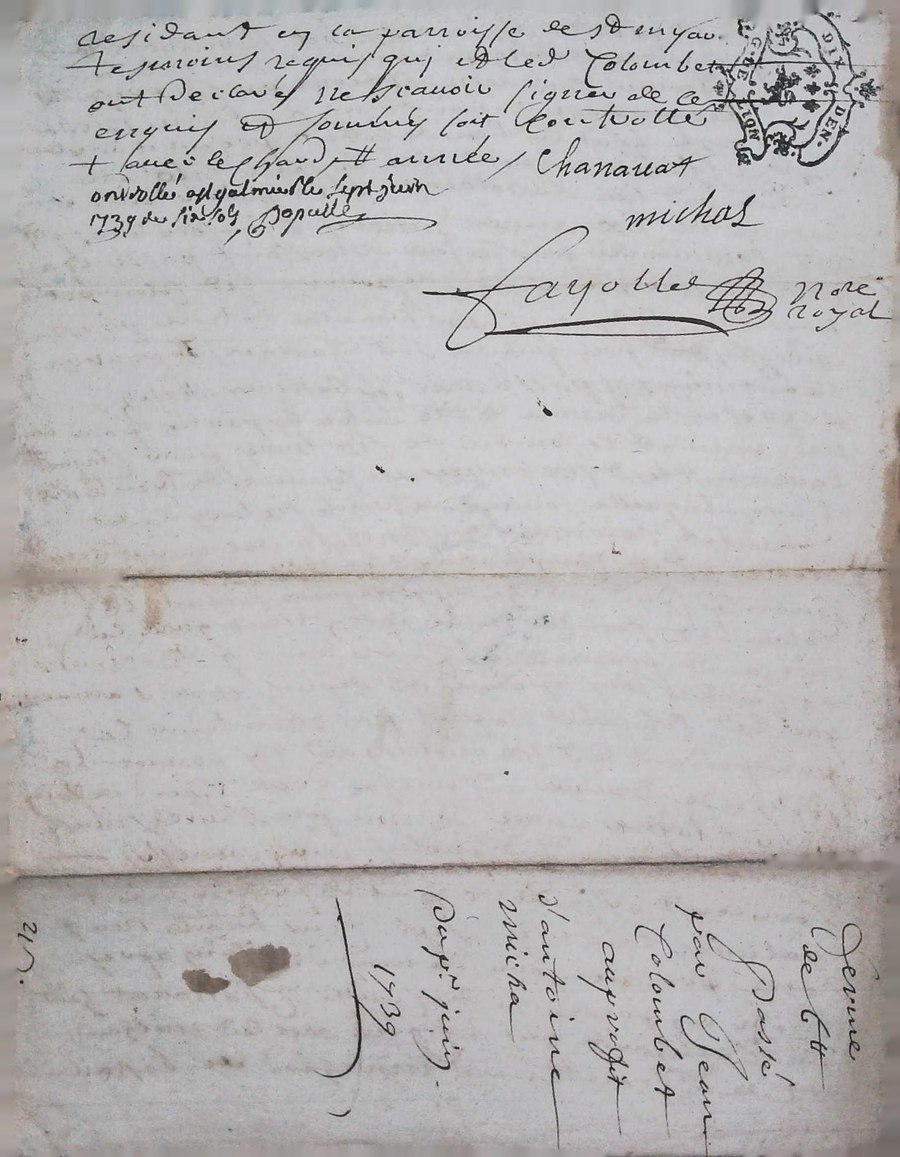 residant en la parroisse de st
tesmoins requis qui et led Colombet
ont declaré ne scavoir signer de ce
enquis et sommés soit Controllé
+ avec le année / Chanauat
ontrollé a st galmier le sept juin
1739 du six sols
michal
fayolle nore
royal
de tt
Passé
par Jean
Colombet
au profit
d'antoine
micha
Du 7e juin
1739